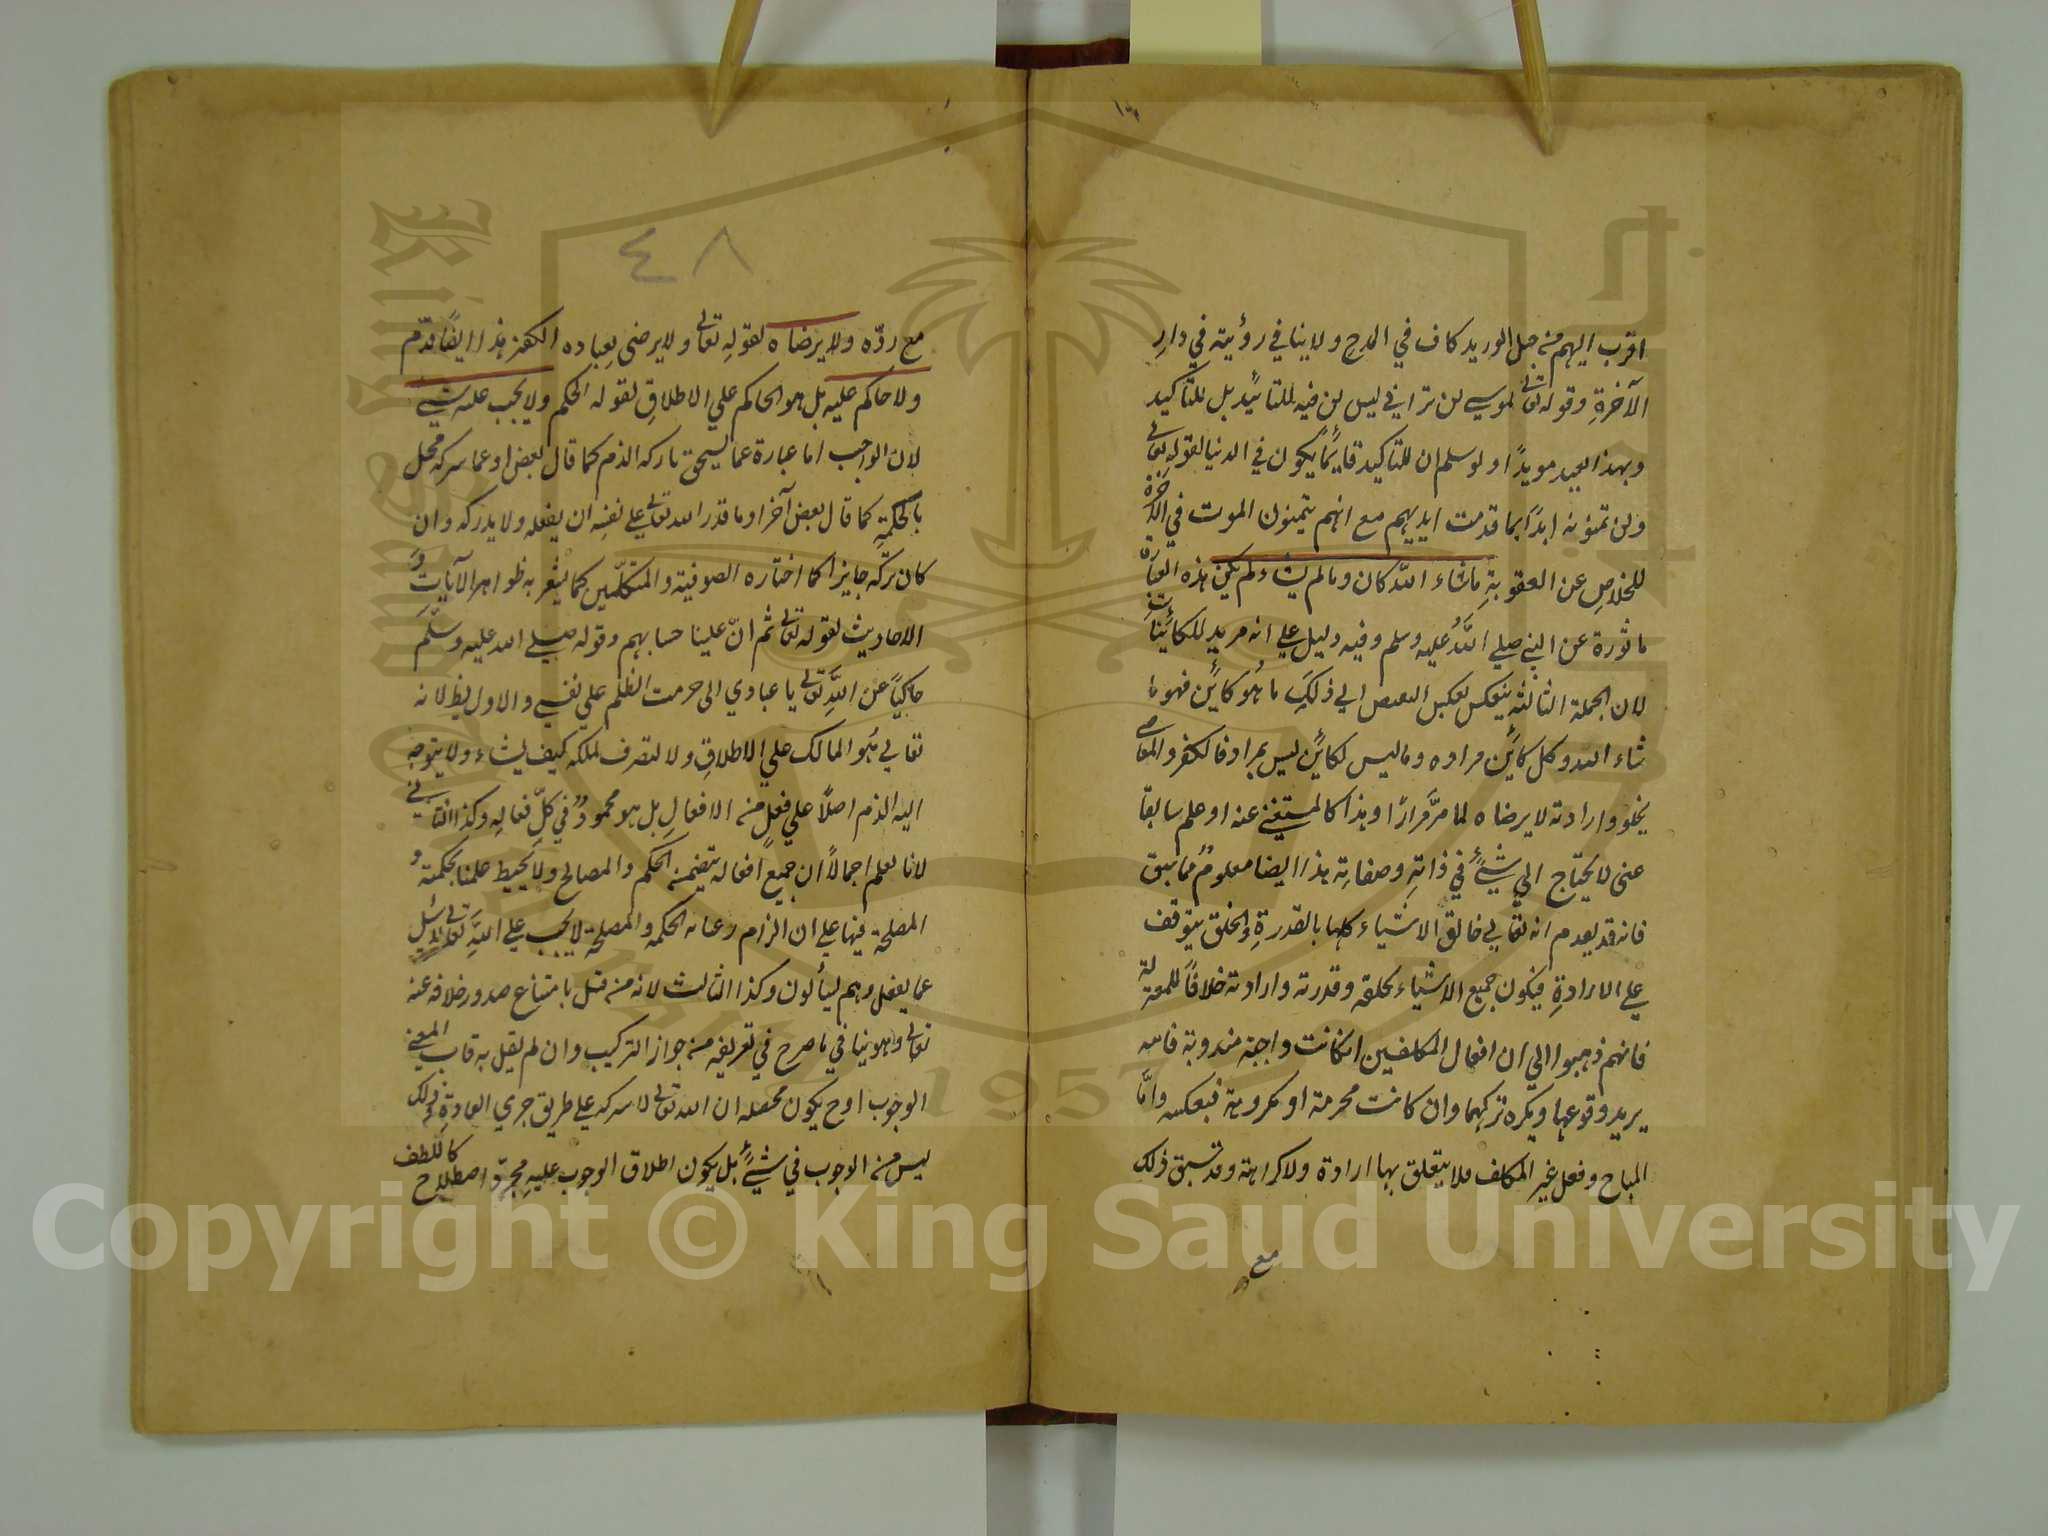 اقرب اليهم من حبل الوريد كاف في المدح ولا ينافي رؤيته في دار
الآخرة وقوله تعالى لموسي لن تراني ليس لن فيه للتائيد بل للتاكيد
ولو سلم ان للتاكيد يكون في الدنيا لقوله تعالى
ولن تمنونه ابدًا بما قدمت ايديهم مع انهم يتمنون الموت في الآخرة
للخلاص عن العقوبة ما شاء الله كان وما لم يشاء لم يكن هذه العبارة
ماثورة عن النبي صلي الله عليه وسلم وفيه دليل علي انه مريد للكائنات
لان الجملة الثانية ينعكس بعكس الي ذلك ما هو كائن فهو ما
شاء الله وكل كائن مراده وما ليس لكائن ليس بمراد فالكفر والمعاصي
بخلقه وارادته لا يرضاه لما مر مرارًا وهذا كالمستغني عنه او علم سابقا
غني لا يحتاج الي شيئ في ذاته وصفاته هذا ايضا معلوم مما سبق
فانه قد انه تعالي خالق الاشياء كلها بالقدرة والخلق يتوقف
علي الارادة فيكون جميع الاشياء بخلقه وقدرته وارادته خلافًا للمعتزلة
فانهم ذهبوا الي ان افعال المكلفين انكانت واجبة مندوبة فانه
يريد وقوعها ويكره تركهما وان كانت محرمة او مكروهة فبعكس واما
المباح وفعل غير المكلف فلا يتعلق بها ارادة ولا كراهة وقد سبق ذلك
مع
٤٨
مع ردّه ولا يرضاه لقوله تعالى ولا يرضى لعباده الكفر هذا ايضًا قدّم
ولا حاكم عليه بل هو الحاكم علي الاطلاق لقوله الحكم ولا يجب عليه شيئ
لان الواجب اما عبارة عما يستحق تاركه الذم كما قال بعض او عما تركه مخل
بالحكمة كما قال بعض آخر او ما قدر الله تعالى علي نفسه ان يفعله ولا يتركه وان
كان تركه جايزا كما اختاره الصوفية والمتكلمين كما يشعر به ظواهر الآيات و
الاحاديث لقوله تعالى ثم انّ علينا حسابهم وقوله صلي الله عليه وسلّم
حاكيًا عن الله تعالى يا عبادي اني حرمت الظلم علي نفسي والاول بط لانه
تعالي هو المالك علي الاطلاق ولا لتصرف لملكه كيف يشاء ولا يتوجه
اليه الذم اصلًا علي فعل من الافعال بل هو محمود في كلّ فعاله وكذا الثاني
لانا نعلم اجمالًا ان جميع افعاله يتضمن الحكم والمصالح ولا يحيط علمنا بحكمته و
المصلحة فيها علي ان الزام رعاية الحكمة والمصلحة لا يجب علي الله تعالى لا يسئل
عما يفعل وهم يسألون وكذا الثالث لانه من قبل بامتناع صدور خلافه عنه
تعالى وهو ينافي ما صرح في تعريفه من جواز الترك وان لم يقل به المعني
الوجوب اوح يكون محصله ان الله تعالى لا يتركه علي طريق جري العادة وذلك
ليس من الوجوب في شيئ بل يكون اطلاق الوجوب عليه مجرّد اصطلاح كاللطف
Copyright © King Saud University
King Saud University
1957